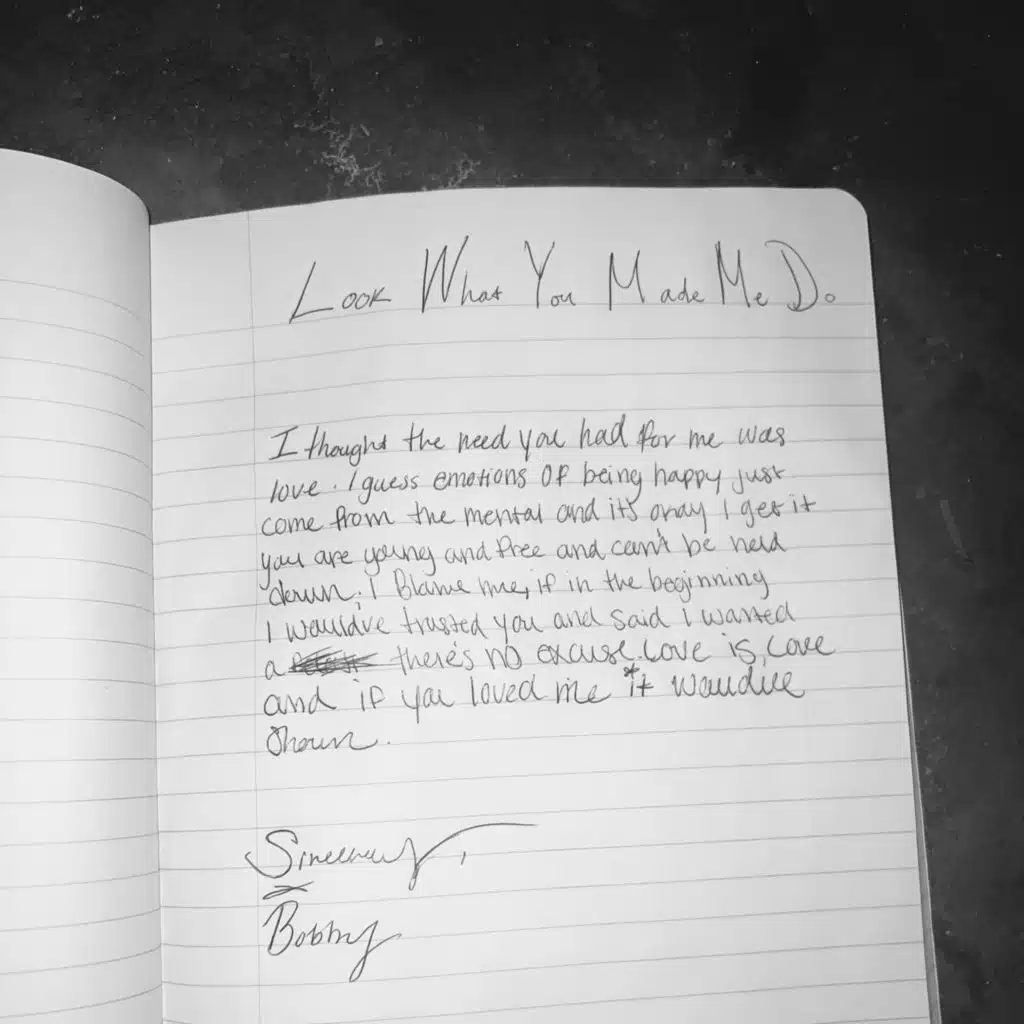 Look What You Made Me Do
I thought the need you had for me was
love. I guess emotions of being happy just
come from the mental and it's okay I get it
you are young and free and can't be held
down; I Blame me, if in the beginning
I wouldve trusted you and said I wanted
a there's no excuse. Love is, Love
and if you loved me it wouldve
Shown.
Sincerely,
Bobby